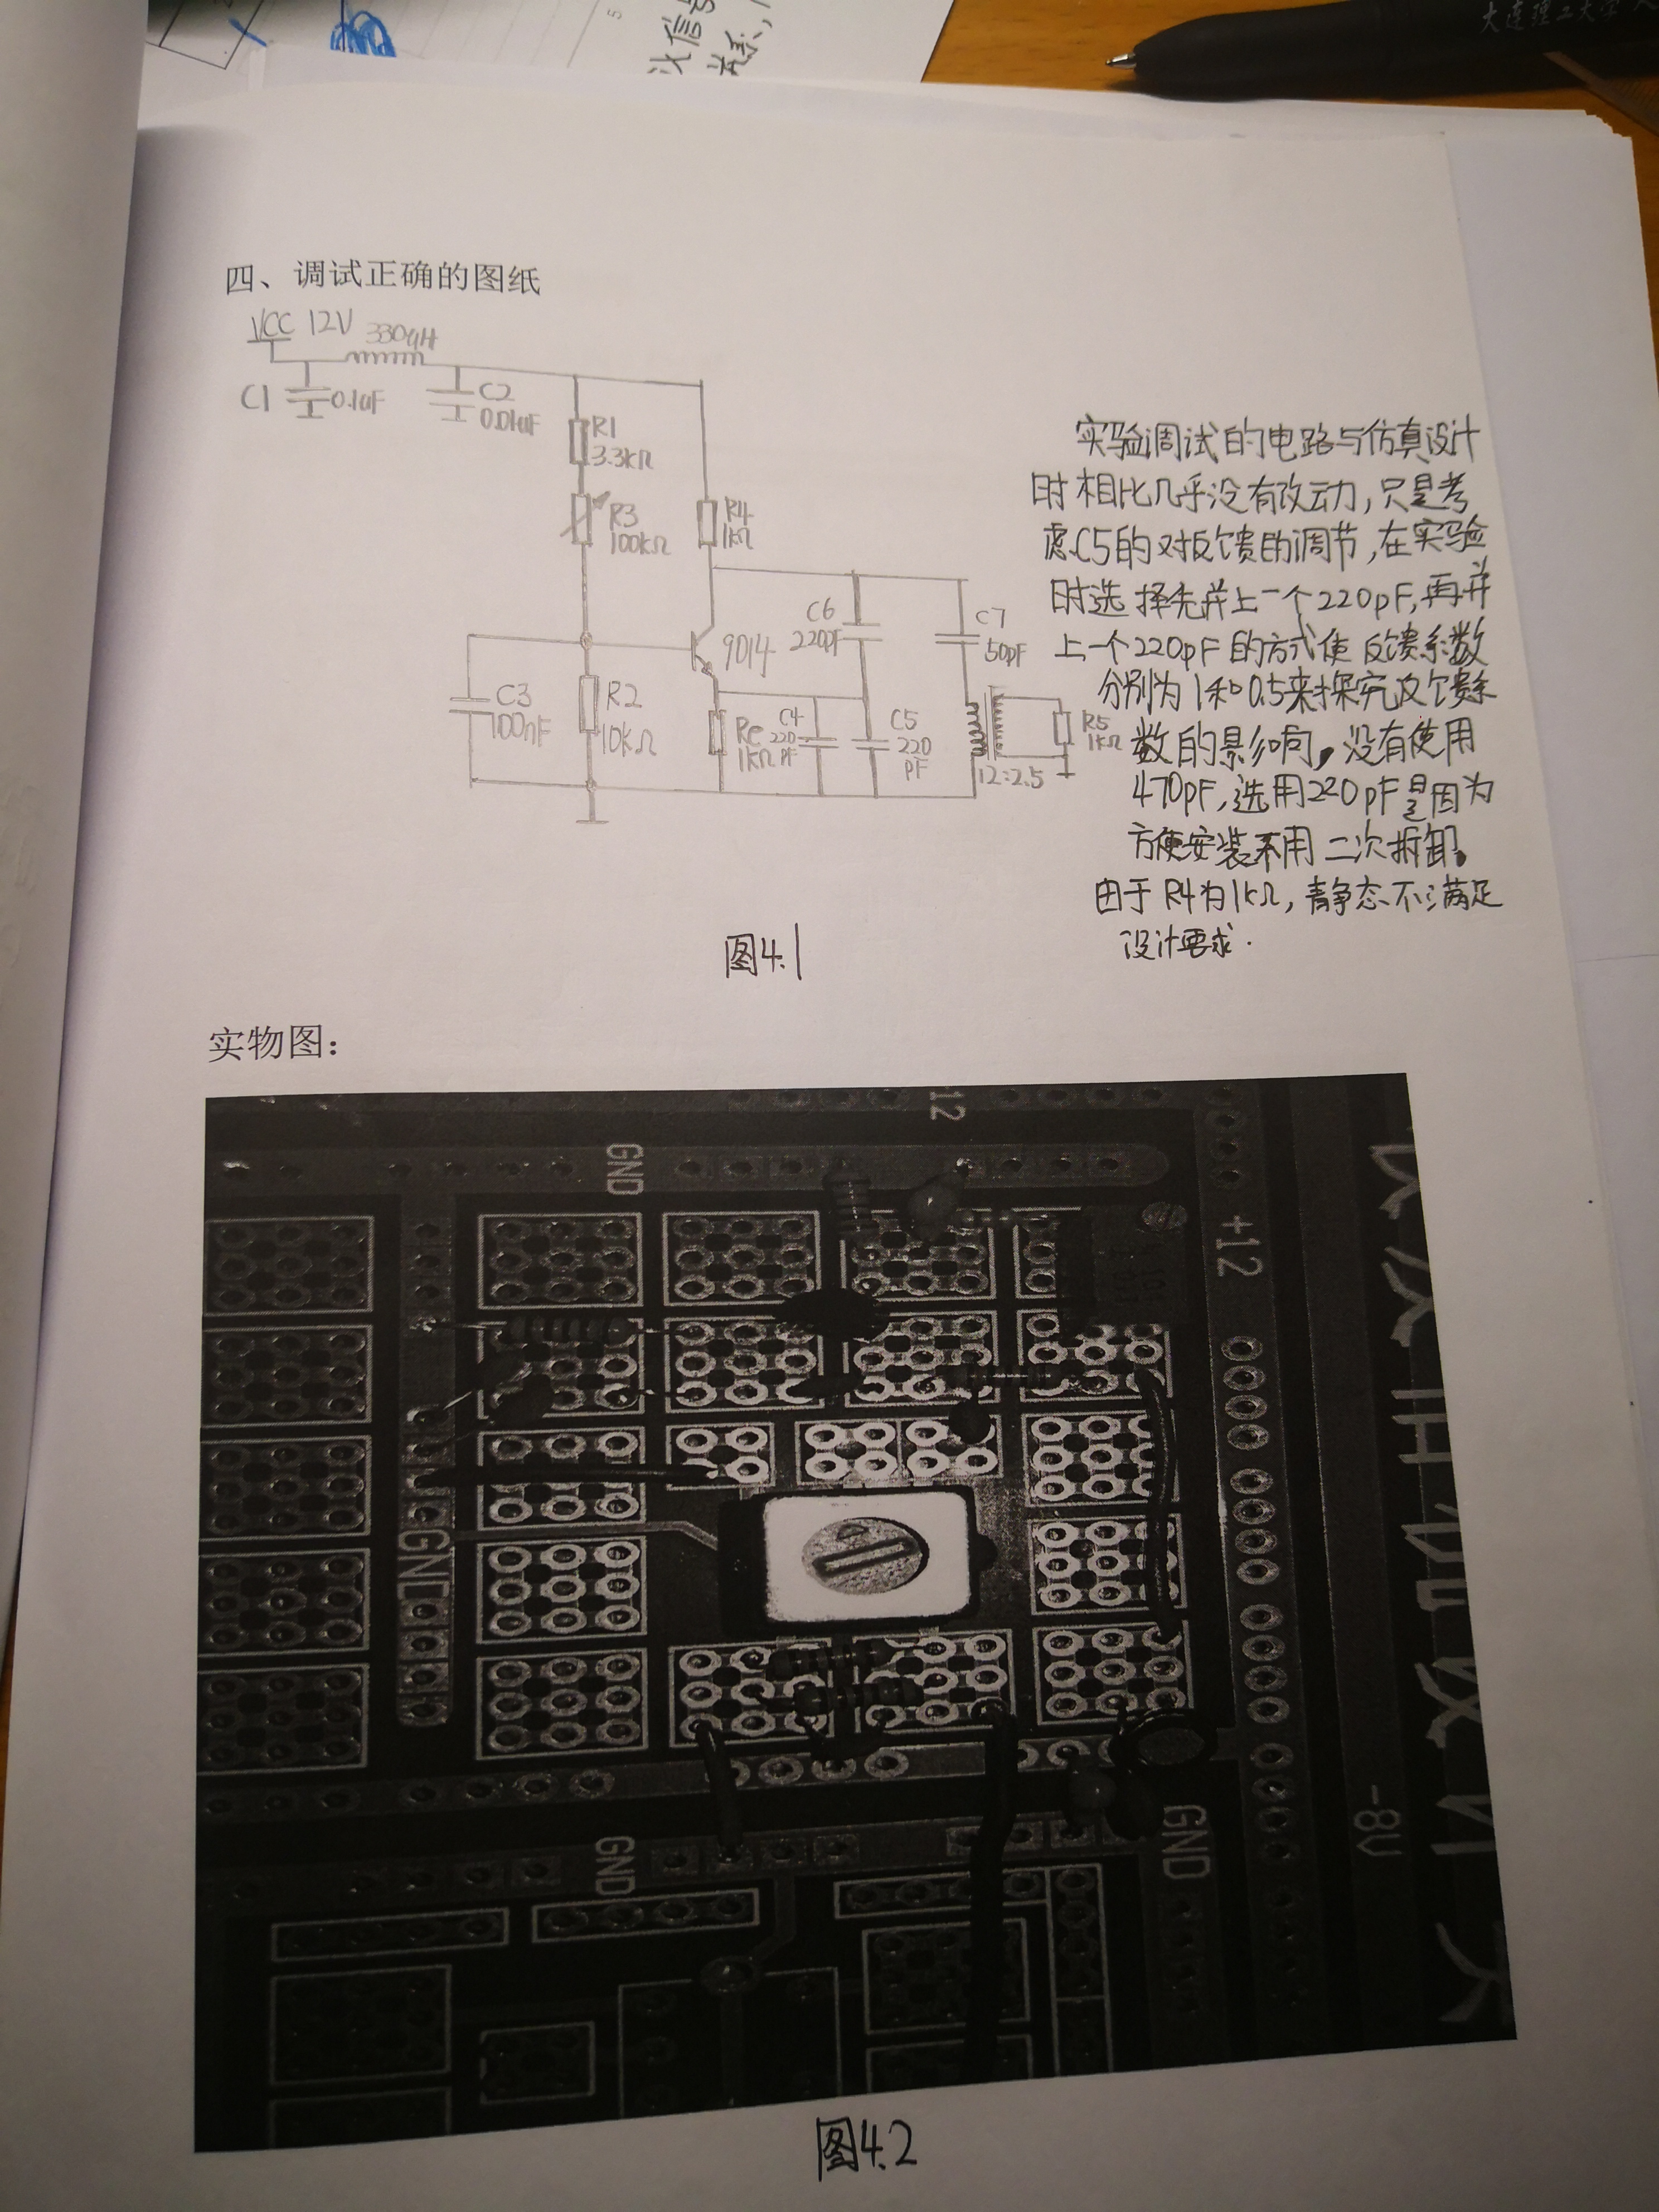 大连理工大学
四、调试正确的图纸
VCC 12V 330uH
C1 0.1uF
C2 0.01uF
R1 3.3kΩ
R3 100kΩ
R4 1kΩ
C6 220pF
C7 50pF
9014
C3 100nF
R2 10kΩ
Re 1kΩ
C4 220 PF
C5 220 PF
R5 1kΩ
12:2.5
实验调试的电路与仿真设计
时相比几乎没有改动,只是考
虑C5的对反馈的调节,在实验
时选择先并上一个220pF,再并
上一个220pF的方式使反馈系数
分别为1和0.5来探究反馈系
数的影响。没有使用
470pF,选用220pF是因为
方便安装不用二次拆卸。
由于R4为1kΩ,静态不满足
设计要求.
图4.1
实物图:
12
GND
+12
GND
-8V
GND
GND
图4.2